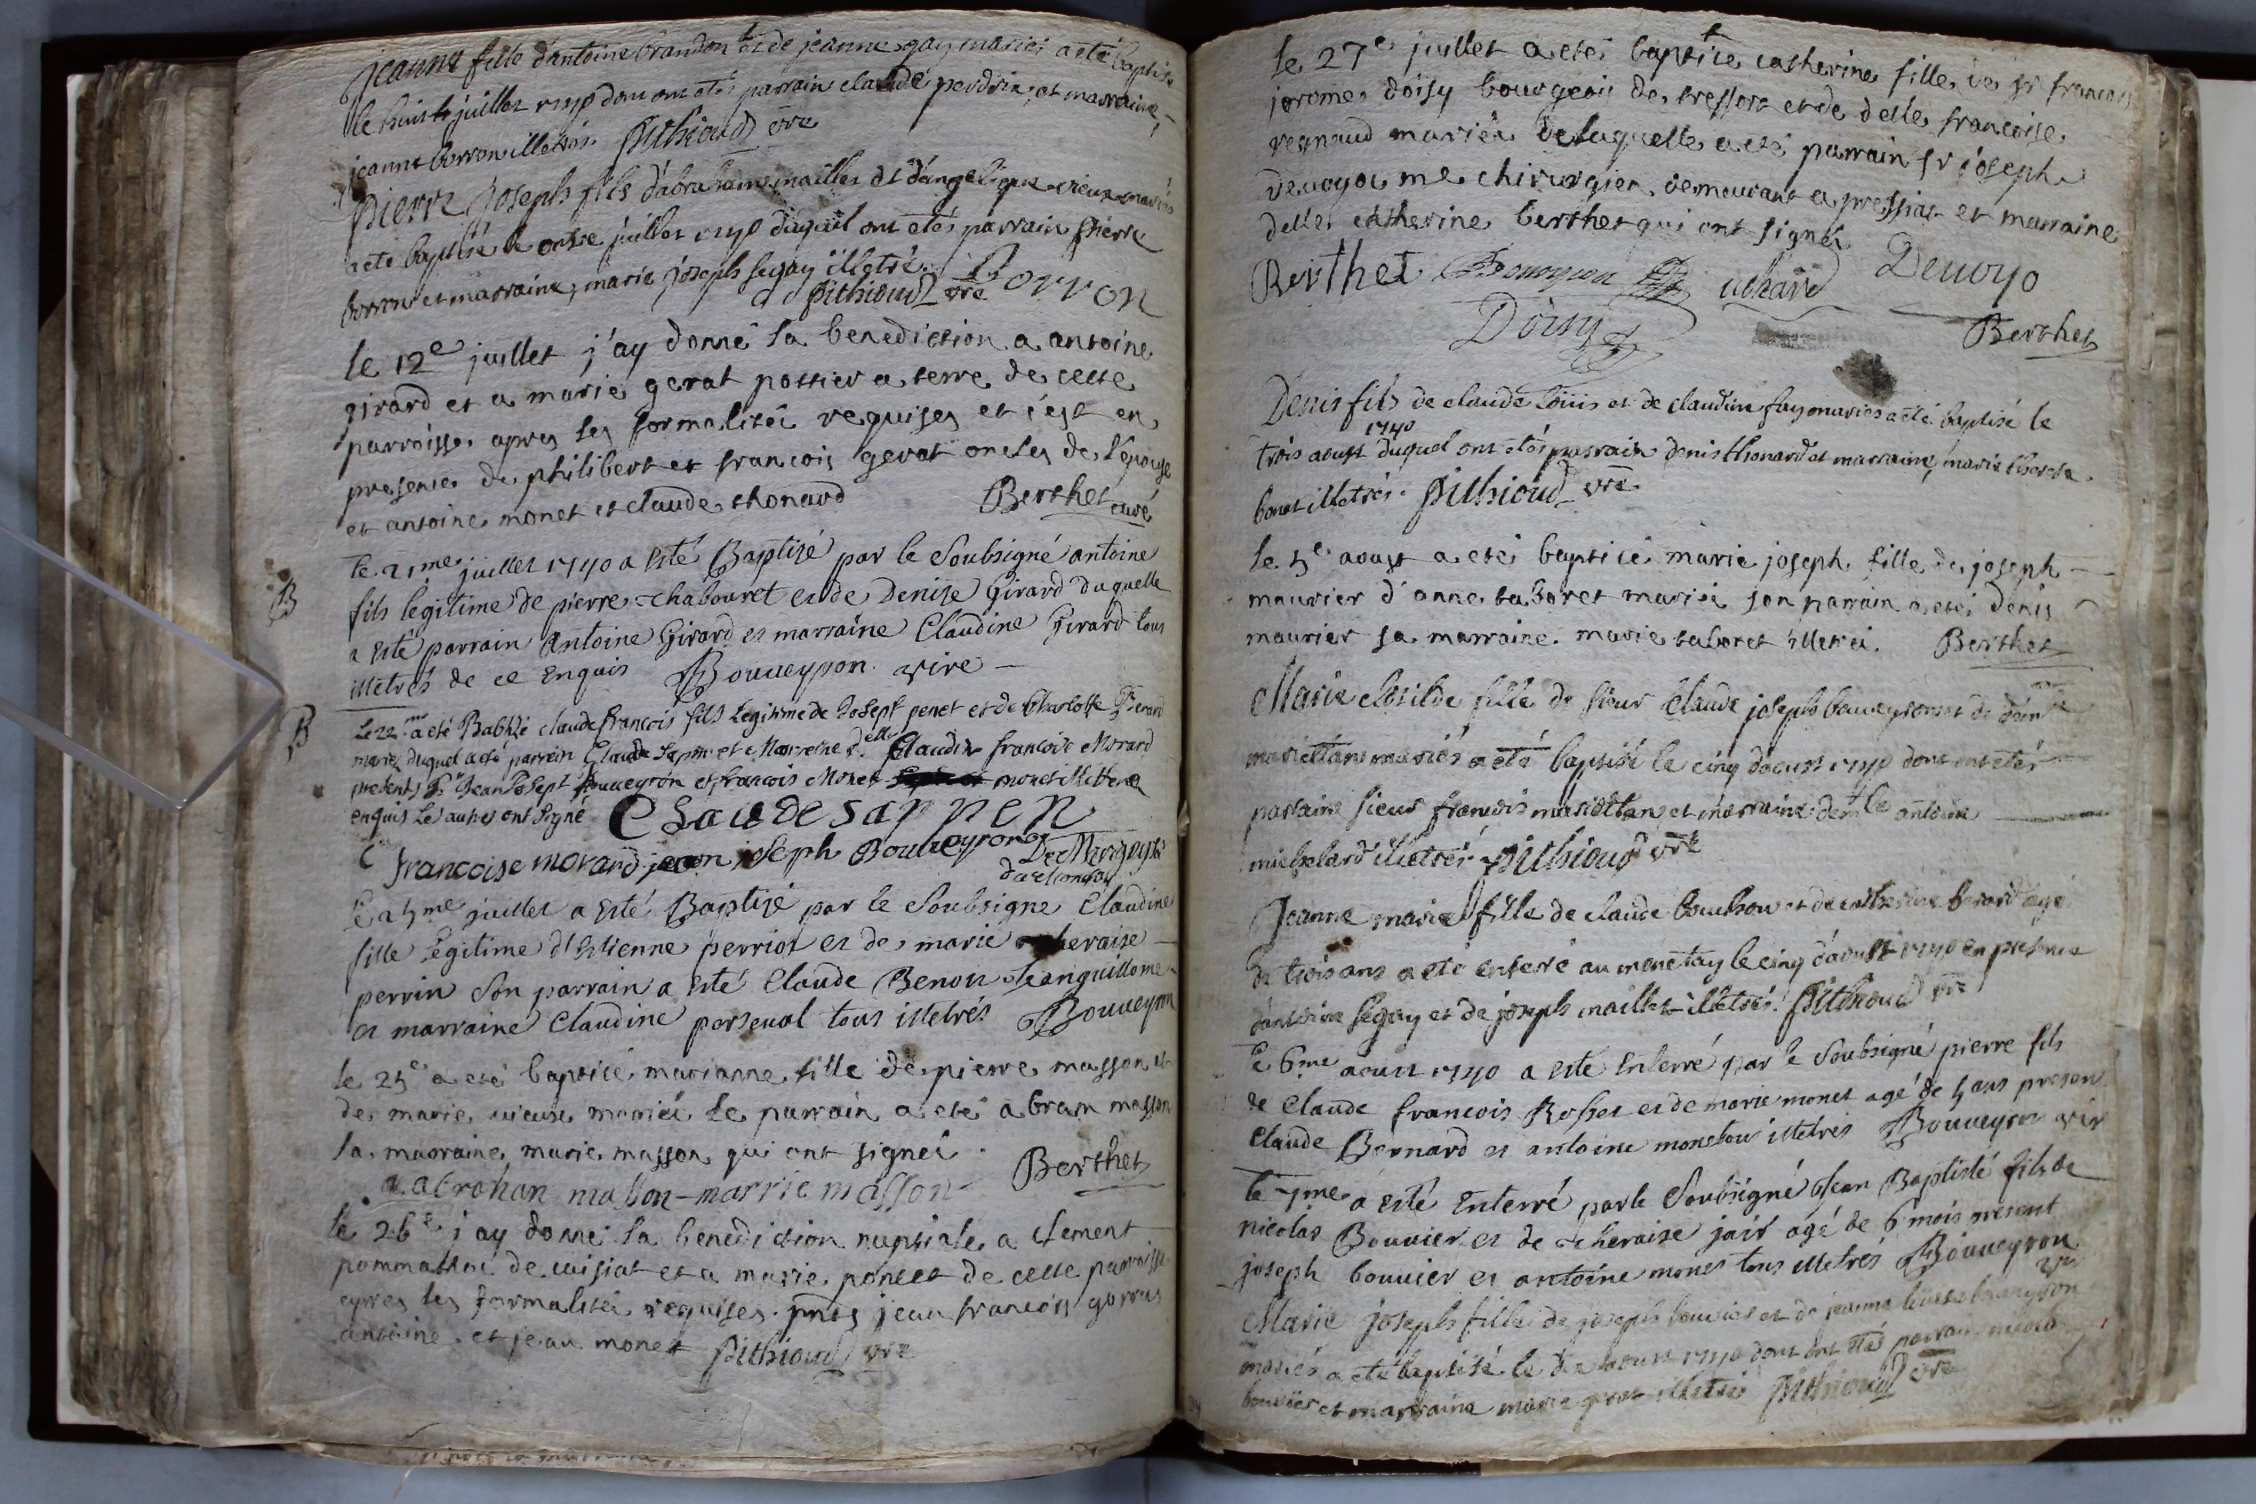 jeanne fille d'antoine brandon et de jeanne gay mariés a eté baptisé
le huit juillet 1740 dont ont etés parrain claude perdrix et marraine
jeanne borron illetrés. Pithioud vre
Pierre joseph fils d'abraham maillet et d'angelique vieux mariés
a eté baptisé le onze juillet 1740 duquel ont etés parrain pierre
borron et marraine marie joseph segay illetré. Borron
Pithioud vre
le 12e juillet j'ay donné la benediction a antoine
girard et a marie gerat pottier a terre de cette
parroisse apres les formalitéi requises et c'est en
presence de philibert et francois gerat oncles de l'epouse
et antoine monet et claude thonard Berthet curé
le 21me juillet 1740 a esté Baptizé par le Soubsigné antoine
B
fils legitime de pierre chabouret et de Denise Girard duquelle
a esté parrain Antoine Girard et marraine Claudine Girard tous
illetrés de ce Enquis Bouveyron vire
B
Le 22me a eté Babtizé claude francois fils Legitime de Josept penet et de Charlotte Berard
mariez duquel a eté parrein Claude Sapin et Marrene delle Claudine francoise Morard
presents Sr Jean Josept Bouveyron et francois Monet monet illettrez
enquis Les autres ont Signé Claude sappnen
C francoise morard jean joseph Bouveyron
Le 25me juillet a esté Baptizé par le Soubsigne Claudine
fille Legitime d'Estienne perriot et de marie theraise
perrin Son parrain a esté Claude Benon Jeanguillome
et marraine Claudine porseval tous illetrés Bouveyron
le 25e a eté baptisé marianne fille de pierre masson et
de marie vieux mariéi le parrain a eté abram masson
la marraine marie masson qui ont signéi.
Berthet
a abrohan masson marrie masson
le 26e j ay donné la benediction nuptiale a clement
pommathioi de cuisiat et a marie poncet de cette parroisse
apres les formalitéi requises. pnts jean francois gorras
antoine et jean monet Pithioud vre
le 27e juillet a etéi baptisé catherine fille de sr francois
jerome doisy bourgeois de treffort et de delle francoise
regnaud mariéi de laquelle a eté parrain sr joseph
devoyo me chirurgien demeurant a pressiat et marraine
delle catherine berthet qui ont signéi
Berthet Bouveyron Devoyo
Doisy Berthet
Denis fils de claude loüis et de claudine fay mariés a eté baptisé le
trois aoust 1740 duquel ont etés parrain denis thonard et marraine marie therese
bonet illetrés. Pithioud vre
le 5e aoust a etéi baptisé marie joseph fille de joseph
maurier d'anne taboret mariéi son parrain a etéi denis
maurier sa marraine marie taboret illetréi. Berthet
Marie clotilde fille de sieur claude joseph bouveyron et de demlle
mariettan mariés a eté baptisé le cinq d'aoust 1740 dont ont etés
parrain sieur francois mariettan et marraine demlle antoine
michelard illetrés Pithioud vre
Jeanne marie fille de claude bouchou et de catherine berard agé
de trois ans a eté enterré au monetay le cinq d'aoust 1740 en présence
d'antoine segay et de joseph maillet illetrés. Pithioud vre
Le 6me aoust 1740 a esté Enterré par le Soubsigné pierre fils
de Claude francois Robert et de marie monet agé de 5 ans presens
Claude Bernard et antoine monetou illetrés Bouveyron vir
Le 7me a esté Enterré par le Soubsigné Jean Baptisté fils de
nicolas Bouvier et de theraise jair agé de 6 mois present
joseph bouvier et antoine monet tous illetrés Bouveyron
vir
Marie joseph fille de joseph bouvier et de jeanne bouveyron
mariés a eté baptisé le dix aoust 1740 dont ont eté parrain
bouvier et marraine marie gerat illetrés Pithioud vre